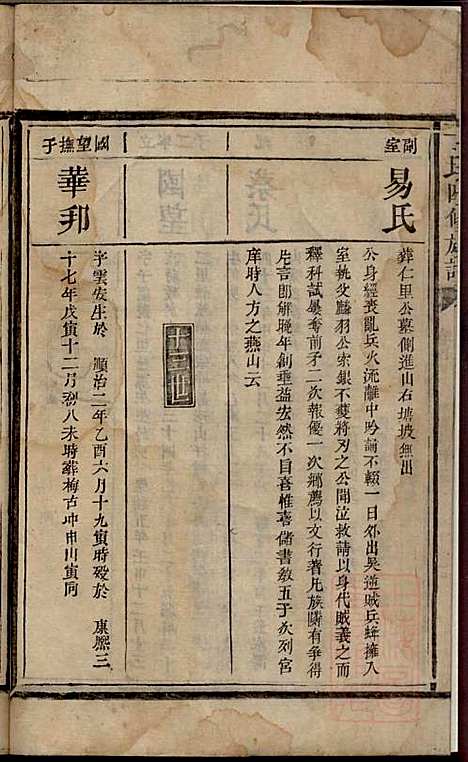 副室
易氏
葬仁里公墓側進山右塘坡無出
公身經喪亂兵火流離中吟誦不輟一日外出吳逆賊兵蜂擁入
室執父驗羽公索銀不獲將刃之公聞泣救請以身代賊義之而
釋科試屢奪前矛二次報優一次鄉薦以文行著凡族隣有爭得
片言即解晚年創垂益宏然不自喜惟喜儲書教五子次列宮
庠時人方之燕山云
十三世
國望撫子
華邦
字雲安生於 順治二年乙酉六月十九寅時歿於 康熙三
十七年戊寅十二月初八未時葬梅古冲申山寅向
氏四修族譜